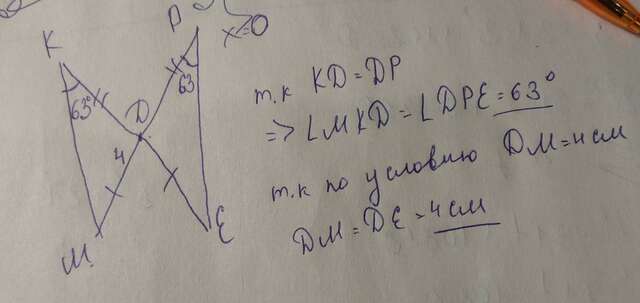 K
P
x=0
63°
63
D
4
M
E
т.к KD=DP
=> ∠MKD=∠DPE=63°
т.к по условию DM=4см
DM=DE=4см